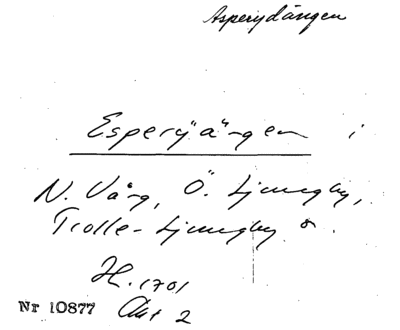 Asperydängen
Esperyängen i
N. Vång, Ö. Ljungby,
Trolle-Ljungby o.
H. 1701
Nr 10877 Akt 2